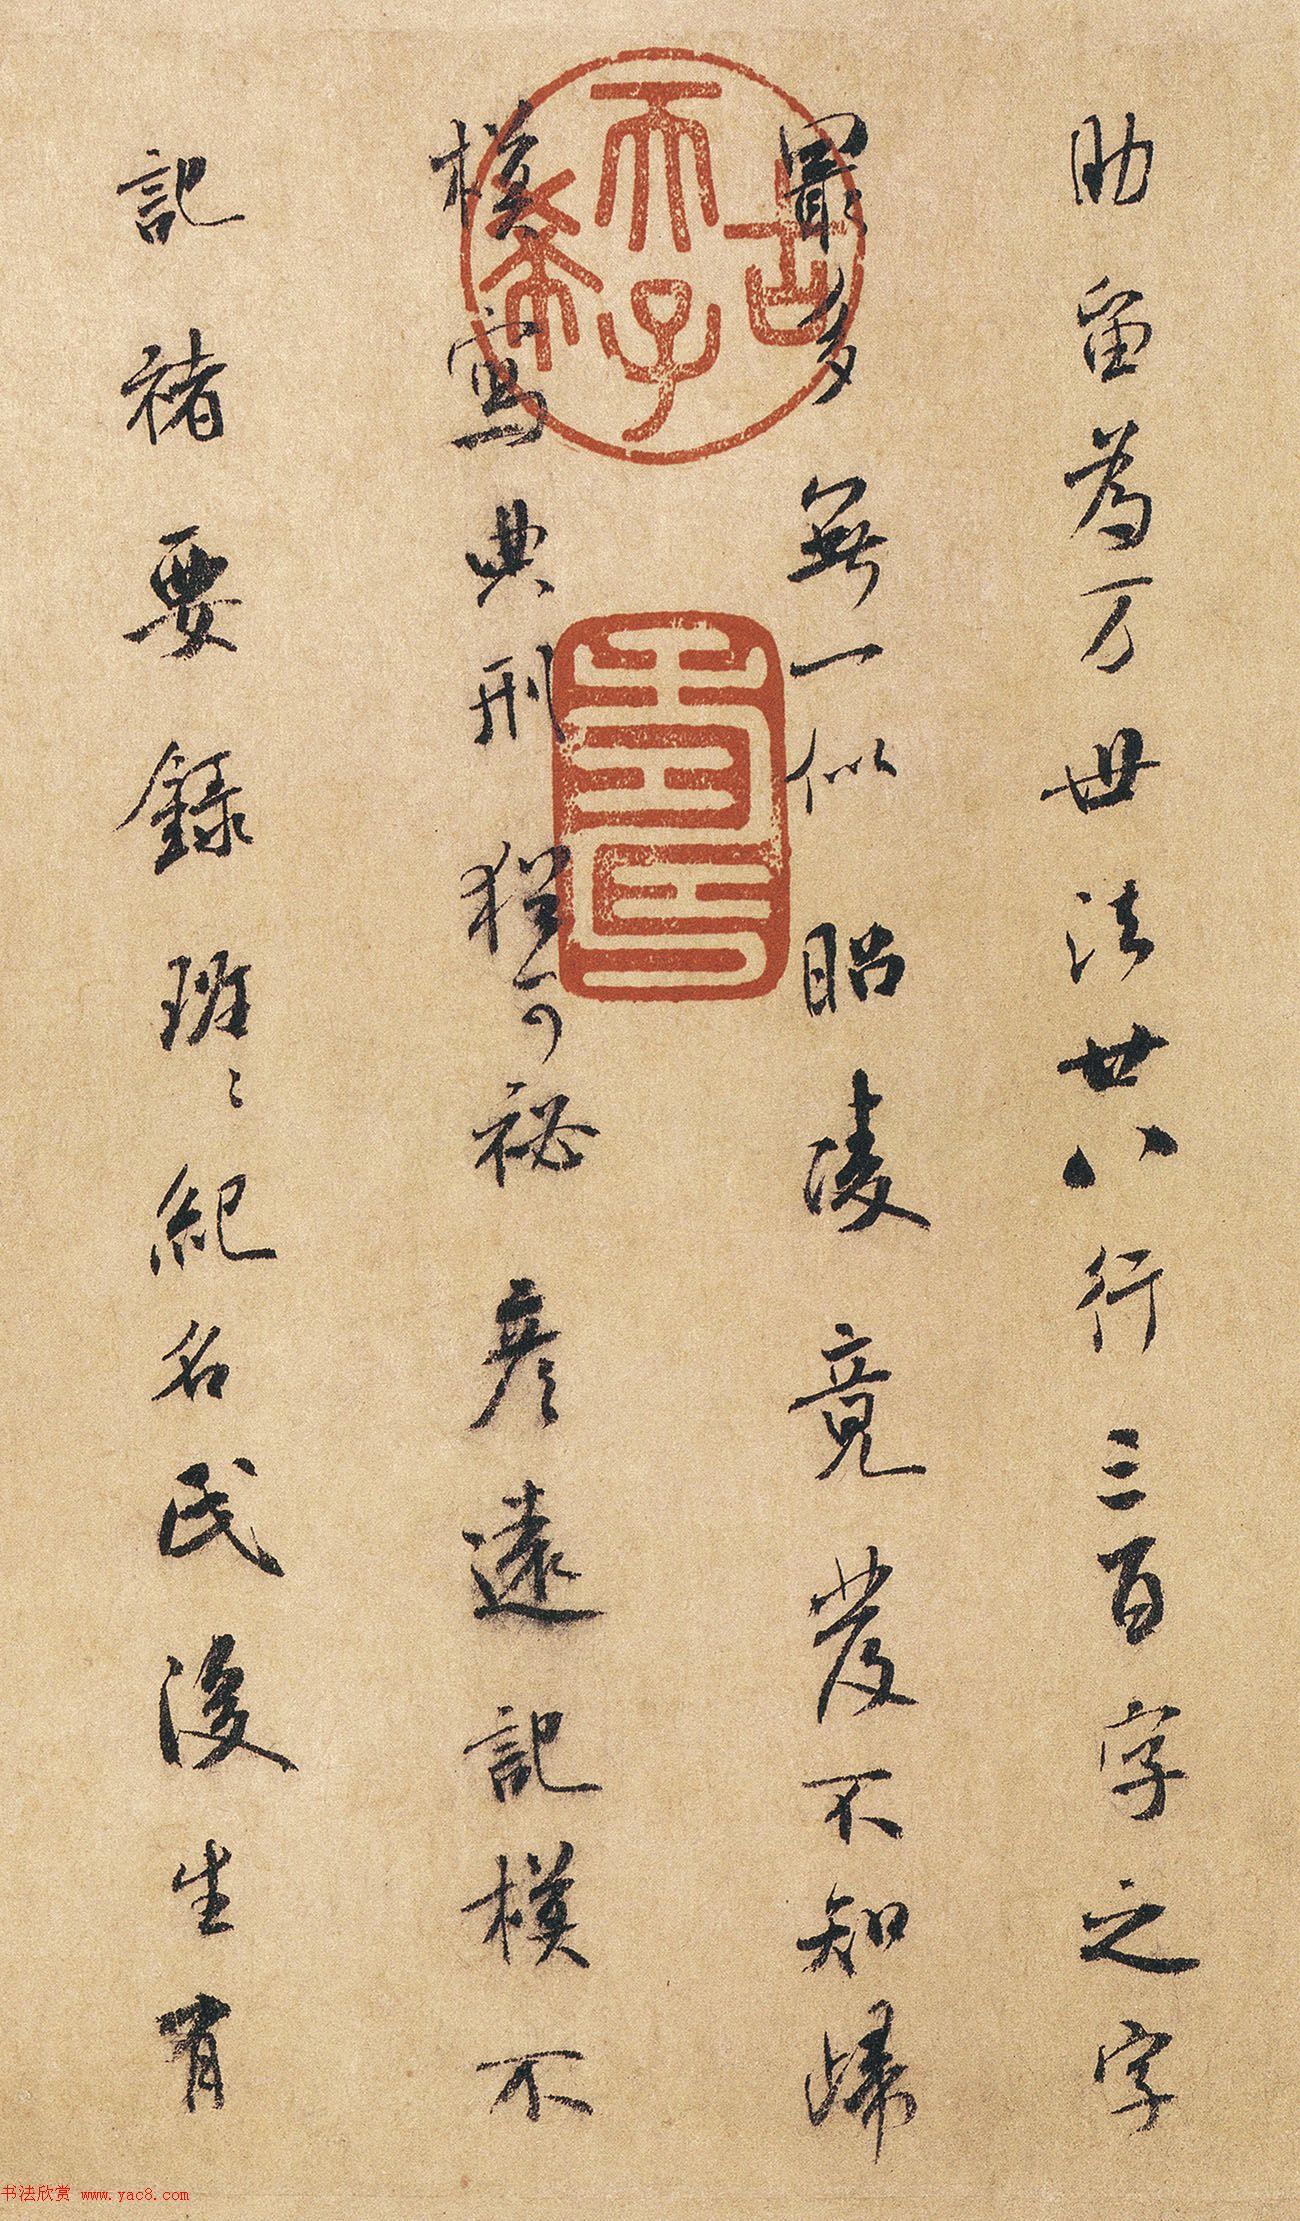 助留為万世法廿八行三百字之字
最多無一似昭陵竟發不知歸
模寫典刑猶可祕彥遠記模不
記褚要錄班〻紀名氏後生有
天子
古希
壽
书法欣赏 www.yac8.com